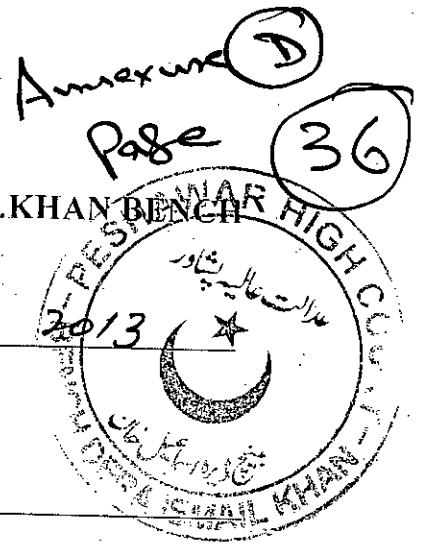 Annexure D
Page 36
.KHAN BENCH
PESHAWAR HIGH COURT
عدالت عالیہ پشاور
2013
بینچ ڈیرہ اسماعیل خان
DERA ISMAIL KHAN